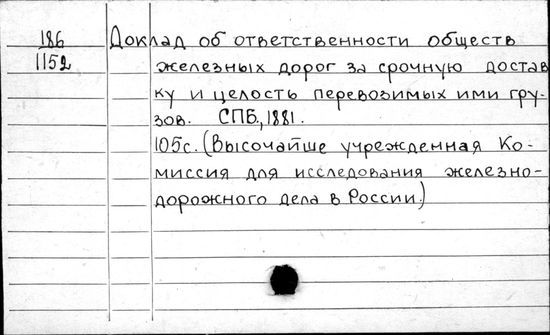 186 Доклад об ответственности обществ
1152 железных дорог за срочную достав
ку и целость перевозимых ими гру-
зов. СПБ., 1881.
105с. (Высочайше учрежденная Ко-
миссия для исследования железно-
дорожного дела в России.)